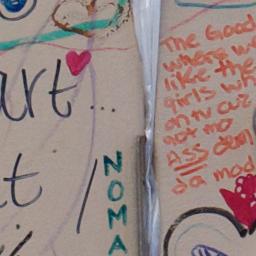 art...
t
NOMA
The Good
where we
like the
girls wh
on tv cuz
not mo
Ass dem
da mod